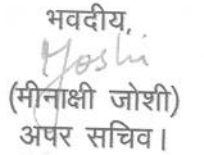 भवदीय,
Joshi
(मीनाक्षी जोशी)
अपर सचिव।